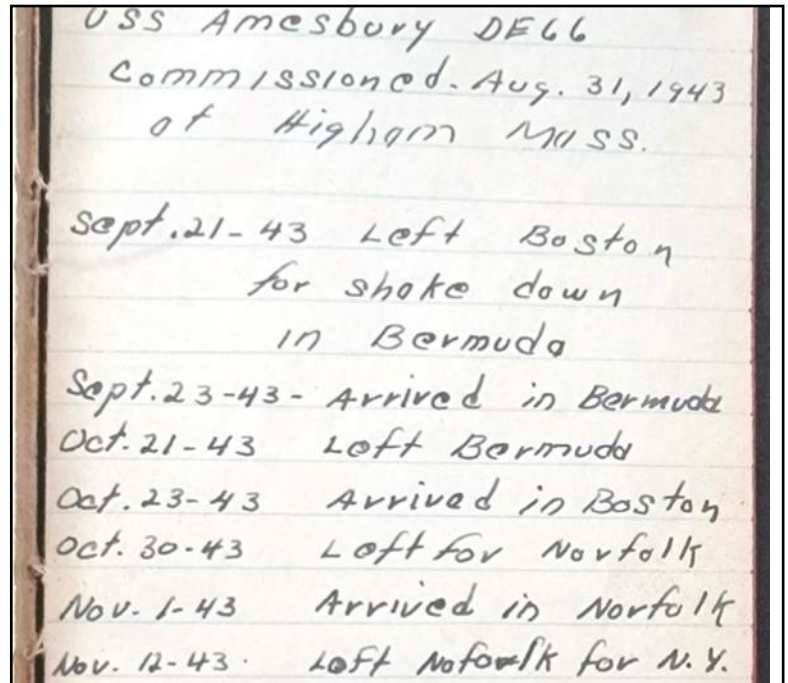 USS Amesbury DE66
Commissioned. Aug. 31, 1943
at Higham Mass.
Sept. 21-43 Left Boston
for shake down
in Bermuda
Sept. 23-43- Arrived in Bermuda
Oct. 21-43 Left Bermuda
Oct. 23-43 Arrived in Boston
Oct. 30-43 Left for Norfolk
Nov. 1-43 Arrived in Norfolk
Nov. 12-43. Left Nofolk for N.Y.